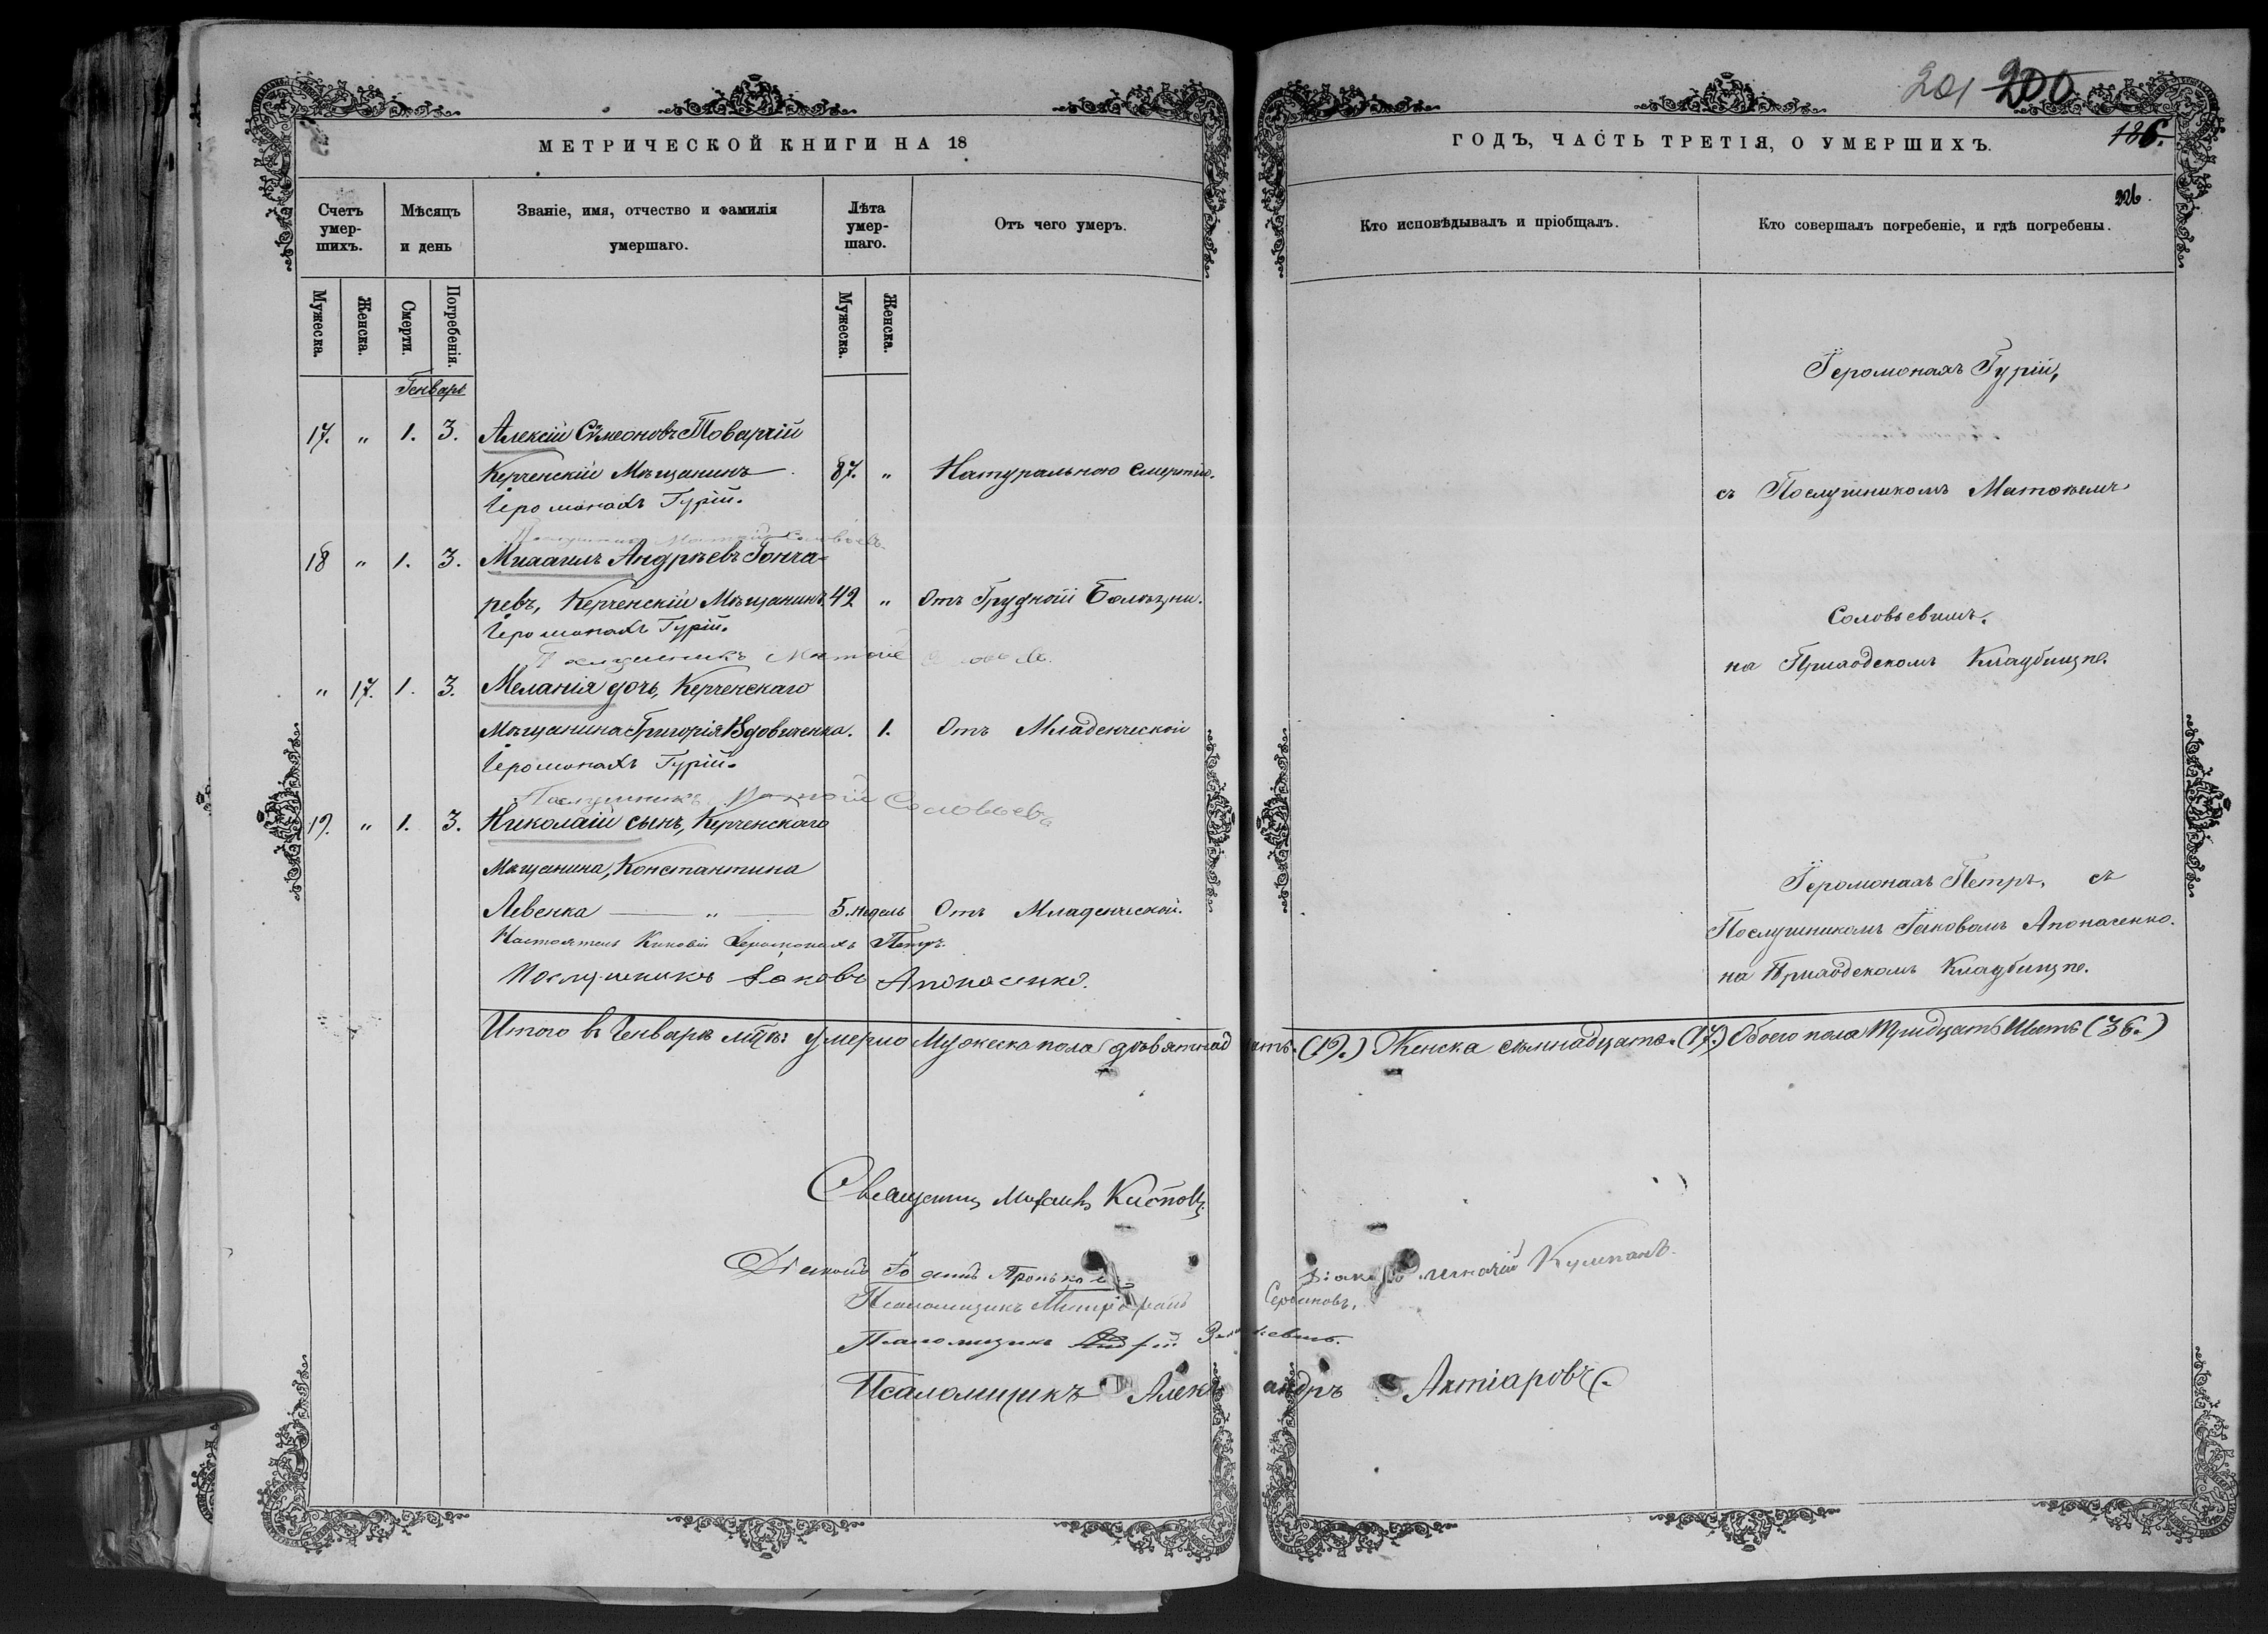 201 200
МЕТРИЧЕСКОЙ КНИГИ НА 18
ГОДЪ, ЧАСТЬ ТРЕТІЯ, О УМЕРШИХЪ.
186.
226.
Счетъ умер-шихъ.
Мѣсяцъ и день
Званіе, имя, отчество и фамилія умершаго.
Лѣта умер-шаго.
Отъ чего умеръ.
Кто исповѣдывалъ и пріобщалъ.
Кто совершалъ погребеніе, и гдѣ погребены.
Мужеска.
Женска.
Смерти.
Погребенія.
Мужеска.
Женска.
Генварь
Іеромонахъ Гурій,
17. " 1. 3. Алексій Сѵмеоновъ Товарчій
Керченскій Мѣщанинъ 87. " Натуральною смертію.
Іеромонахъ Гурій.
съ Послушникомъ Матѳѣемъ
Послушникъ Матѳій Соловьевъ.
18 " 1. 3. Михаилъ Андрѣевъ Гонча-
ревъ, Керченскій Мѣщанинъ 42 " Отъ Грудной Болѣзни.
Іеромонахъ Гурій.
Соловьевимъ.
Послушникъ Матѳій
на Приходскомъ Кладбищѣ.
" 17. 1. 3. Меланія дочь, Керченскаго
Мѣщанина Григорія Вдовиченка. 1. Отъ Младенческой
Іеромонахъ Гурій.
Послушникъ Матѳій Соловьевъ
19. " 1. 3. Николай сынъ, Керченскаго
Мѣщанина, Константина
Іеромонахъ Петръ, съ
Левенка — " — 5. недель Отъ Младенческой.
Послушникомъ Іаковомъ Апонасенко.
Настоятель Киновіи Іеромонахъ Петръ.
на Приходскомъ Кладбищѣ.
Послушникъ Іаковъ Апонасенко.
Итого въ Генварѣ мцѣ: умерло Мужеска пола девятнадцать. (19.) Женска семнадцать. (17.) Обоего пола Тридцать Шесть (36.)
Священникъ Михаилъ
Діаконъ
Діаконъ
Псаломщикъ Митрофанъ Сербиновъ.
Псаломщикъ
Псаломщикъ Александръ Ахтіаровъ.